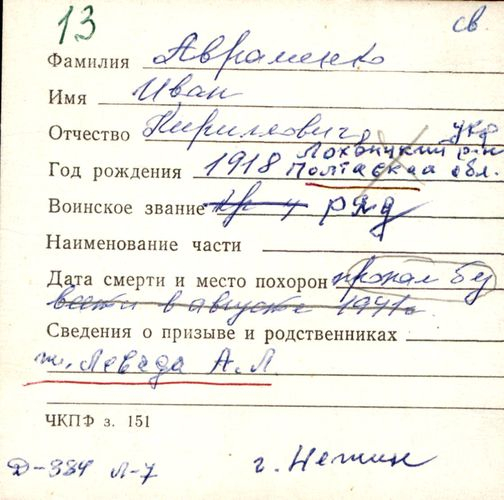 13 св.
Фамилия Авраменко
Имя Иван
Отчество Кириллович, укр
Лохвицкий р-н
Год рождения 1918 Полтавская обл.
Воинское звание ряд
Наименование части
Дата смерти и место похорон пропал без
вести в августе 1941г
Сведения о призыве и родственниках
ж. Левада А.Л
ЧКПФ з. 151
Д-384 л-7 г. Нежин